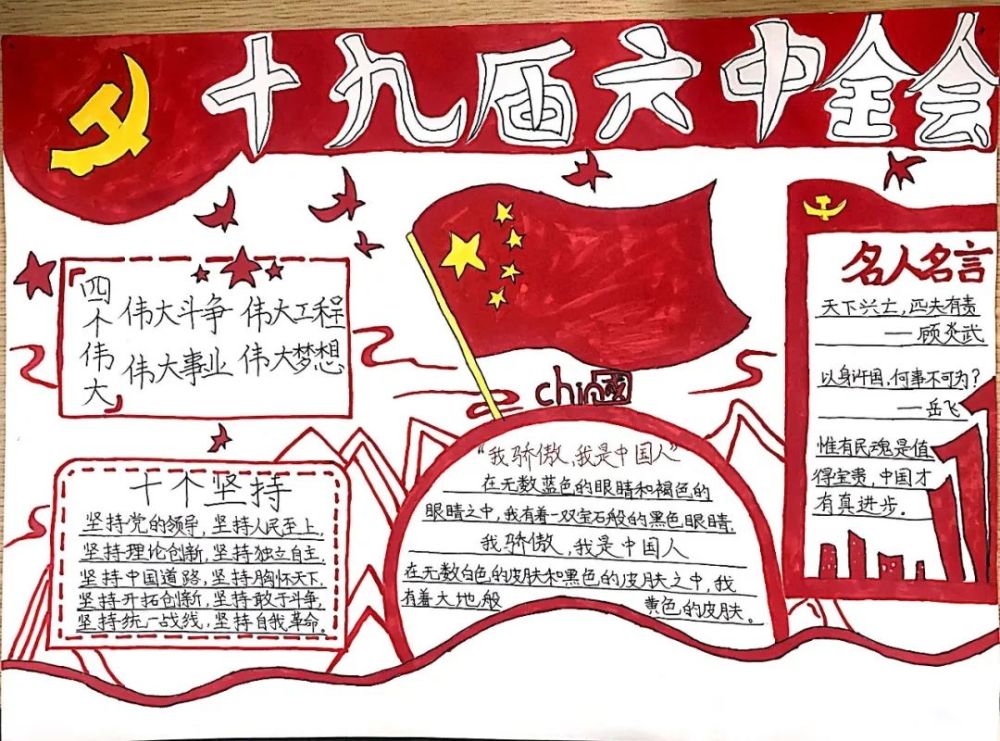 十九届六中全会
四个伟大
伟大斗争 伟大工程
伟大事业 伟大梦想
十个坚持
坚持党的领导,坚持人民至上.
坚持理论创新,坚持独立自主.
坚持中国道路,坚持胸怀天下.
坚持开拓创新,坚持敢于斗争,
坚持统一战线,坚持自我革命.
“我骄傲,我是中国人”
在无数蓝色的眼睛和褐色的
眼睛之中,我有着一双宝石般的黑色眼睛.
我骄傲,我是中国人
在无数白色的皮肤和黑色的皮肤之中,我
有着大地般 黄色的皮肤。
名人名言
天下兴亡,匹夫有责
——顾炎武
以身许国,何事不可为?
——岳飞
惟有民魂是值
得宝贵,中国才
有真进步.